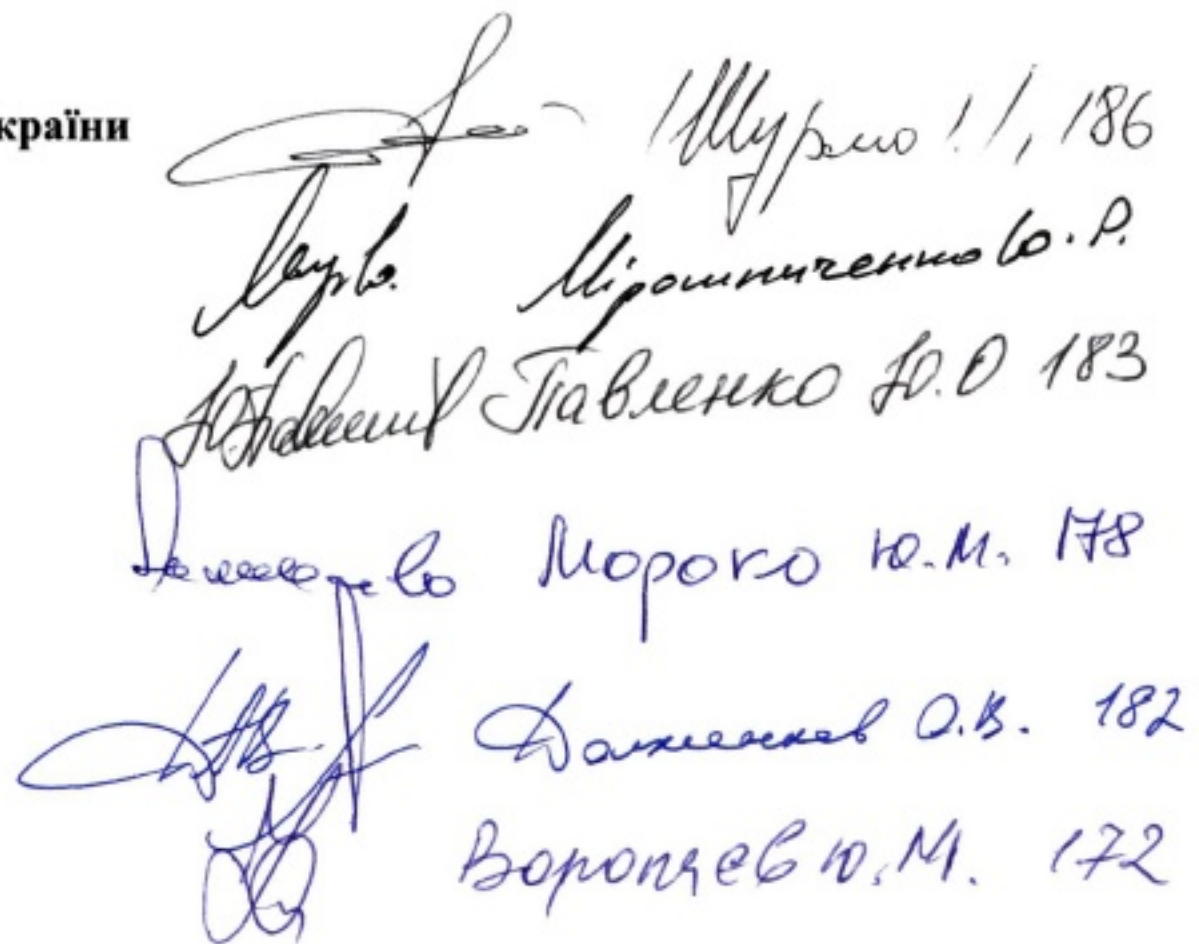 країни
/Шурмо І./, 186
Мірошниченко Ю. Р.
Павленко Ю.О 183
Мороко Ю.М. 178
Долженков О.В. 182
Воропаєв Ю.М. 172